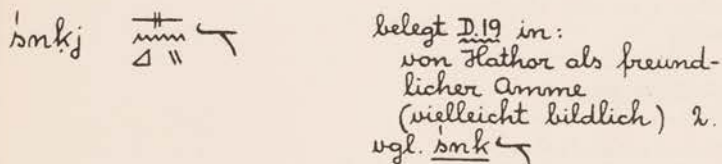 śnḳj 𓊃𓈖𓈎𓏭𓂑 belegt D.19 in:
von Hathor als freund-
licher Amme
(vielleicht bildlich) 2.
vgl. śnḳ 𓂑